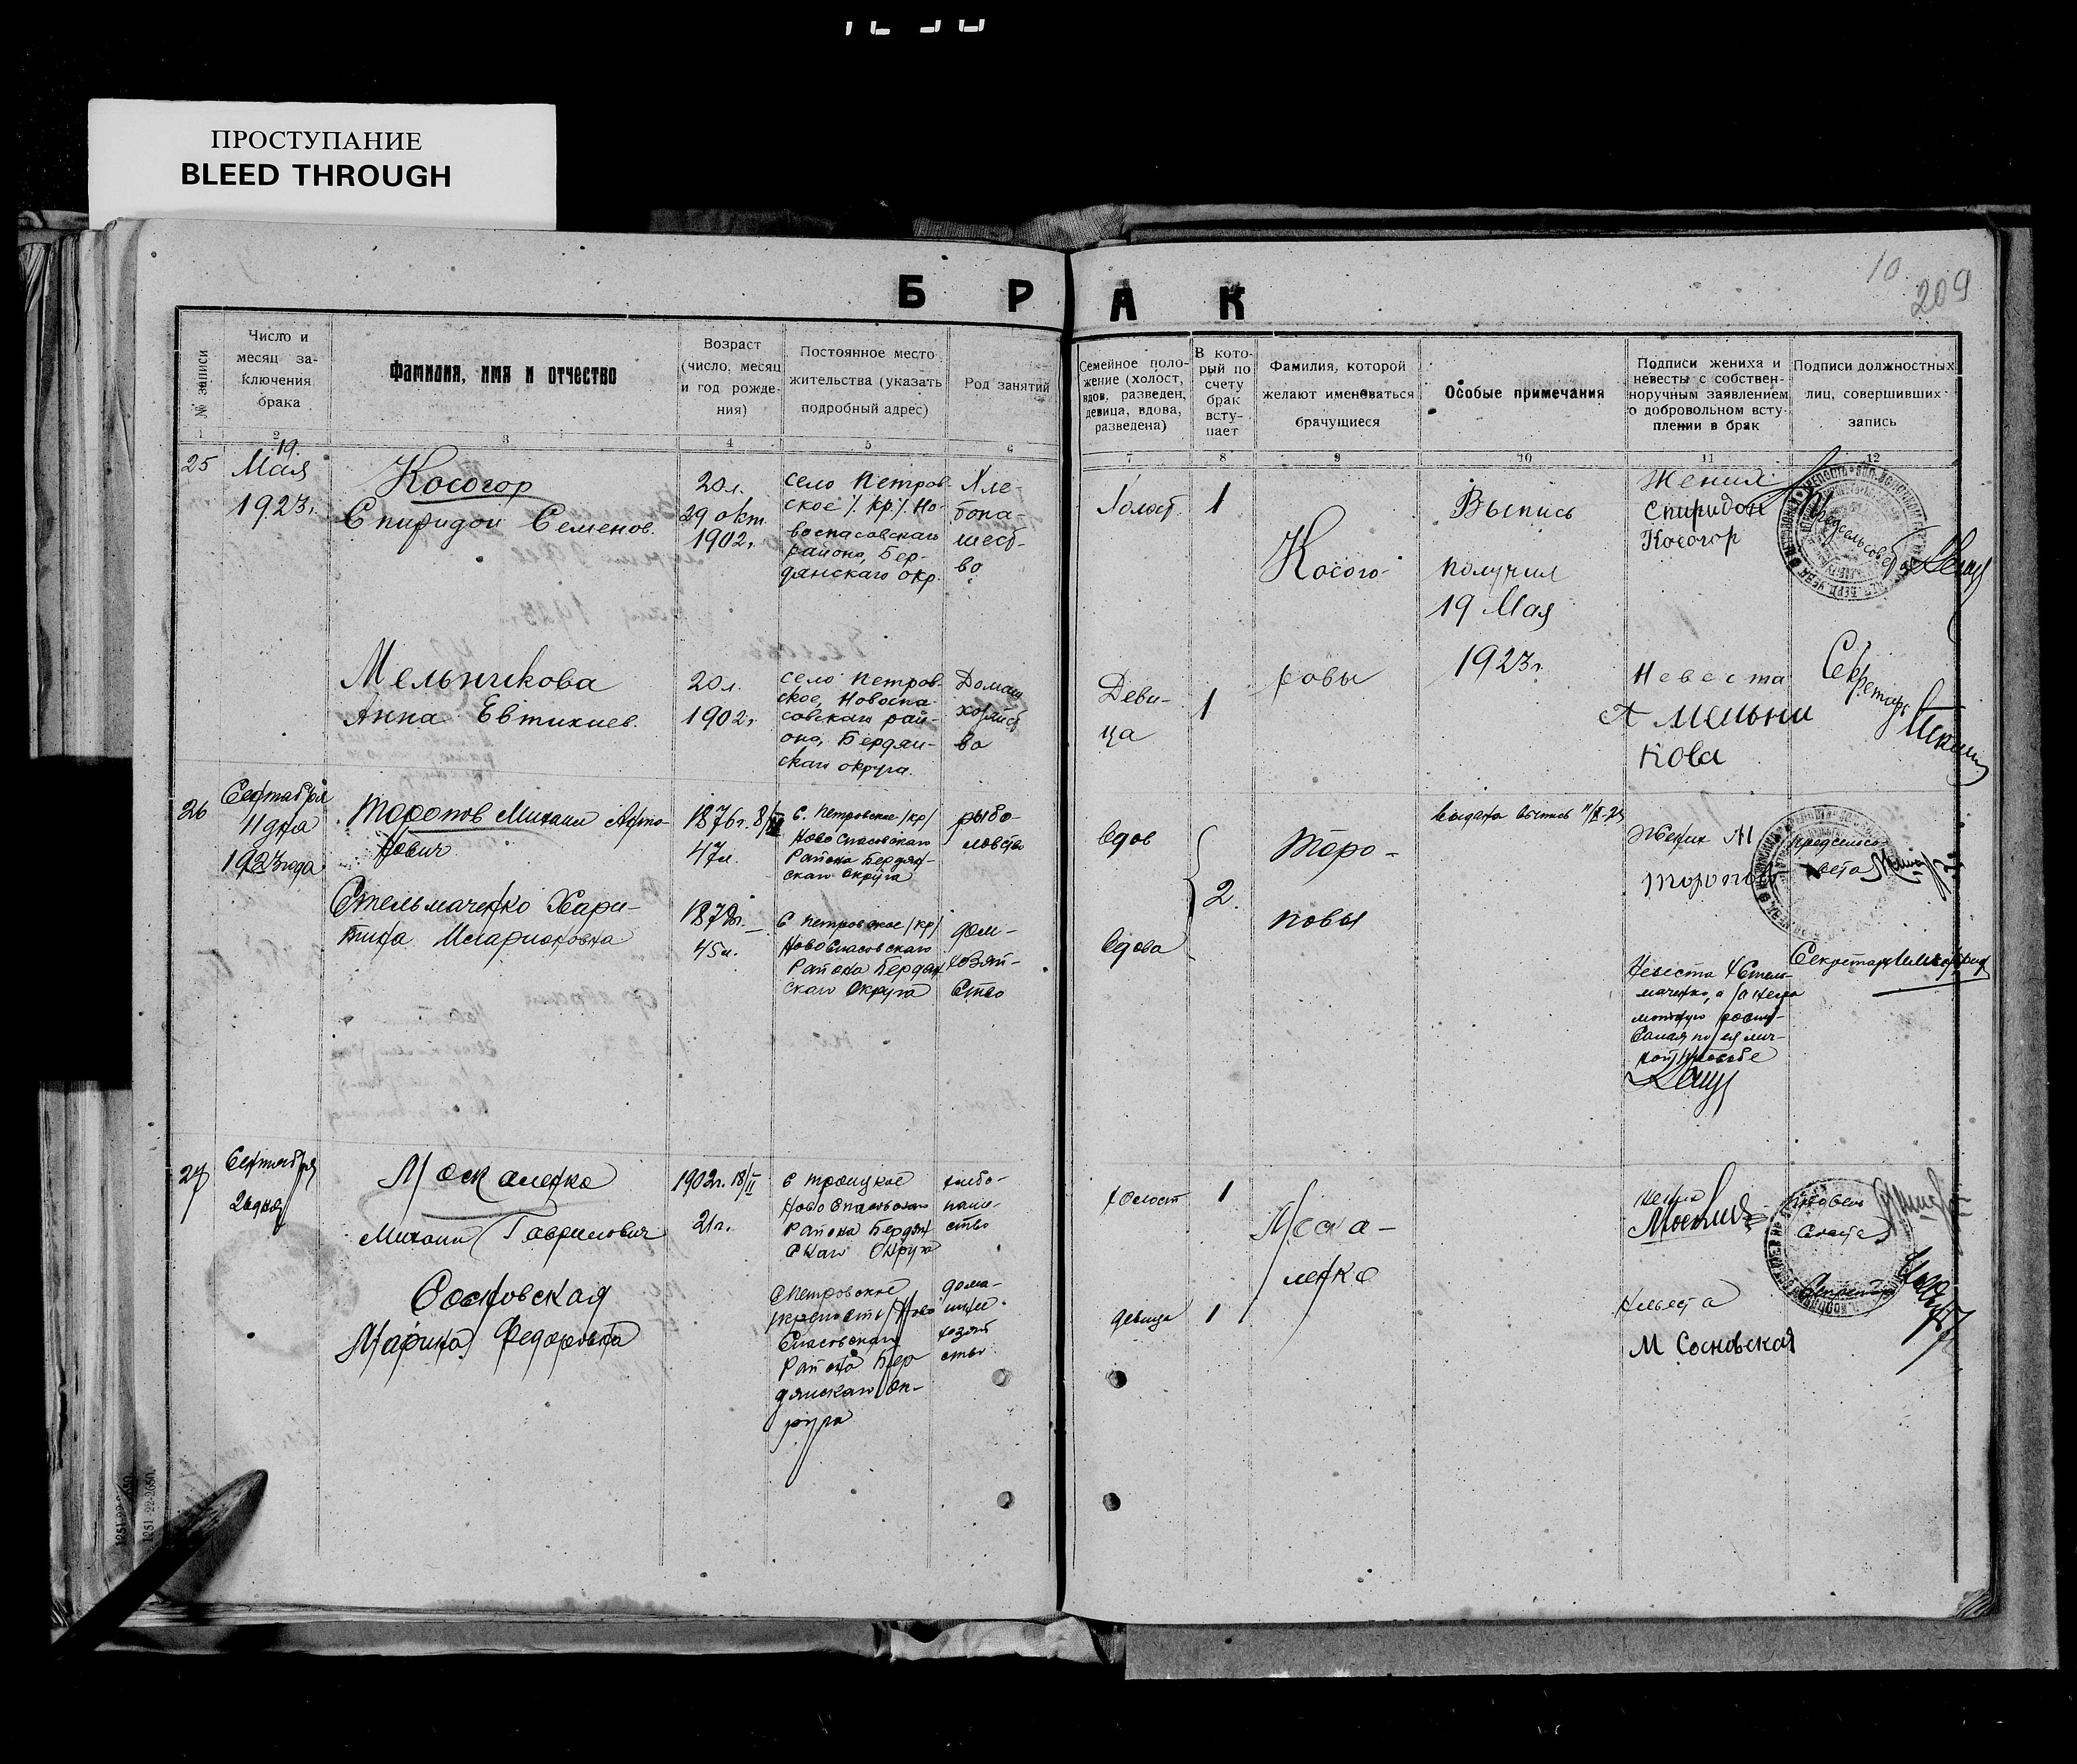 ПРОСТУПАНИЕ
BLEED THROUGH
БРАК
10
209
№ записи
Число и
месяц за-
ключения
брака
Фамилия, имя и отчество
Возраст
(число, месяц
и год рожде-
ния)
Постоянное место
жительства (указать
подробный адрес)
Род занятий
Семейное поло-
жение (холост,
вдов, разведен,
девица, вдова,
разведена)
В кото-
рый по
счету
брак
всту-
пает
Фамилия, которой
желают именоваться
брачущиеся
Особые примечания
Подписи жениха и
невесты с собствен-
норучным заявлением
о добровольном всту-
плении в брак
Подписи должностных
лиц, совершивших
запись
1 2 3 4 5 6 7 8 9 10 11 12
25
19
Мая
1923 г.
Косогор
Спиридон Семенов.
20 л.
29 окт.
1902 г.
село Петров-
ское /кр/ Но-
воспасовскаго
района, Бер-
дянскаго окр.
Хле-
бопа-
шест-
во
Холост.
1
Косого-
ровы
Выпись
получил
19 Мая
1923 г.
Жених
Спиридон
Косогор
Предсельсовета
Мельникова
Анна Евтихиев.
20 л.
1902 г.
село Петров-
ское, Новоспа-
совскаго рай-
она, Бердян-
скаго округа.
Домаш
хозяйст
во
Деви-
ца
1
Невеста
А Мельни
кова
Секретарь
26
Сентября
11 дня
1923 года
Торопов Михаил
1876 г. 8/
47 л.
с. Петровское /кр/
Ново Спасовскаго
Района Бердян-
скаго Округа
рыбо-
ловство
Вдов
2.
Торо-
повы
Выдана выпись
Жених М
Торопов
Предсельсо-
вета
Стельмаченко Хари-
тина Иларионовна
45 л.
с Петровское /кр/
Ново Спасовскаго
Района Бердян
скаго Округа
дом-
хозяй-
ство
Вдова
Невеста Х Стель-
маченко, а за
Секретарь
27
Сентября
26 дня
Москаленко
Михаил Гаврилович
1902 г. 18/II
21 г.
с Троицкое
Ново Спасовскаго
Района Бердян
скаго Округа
хлебо-
паше-
ство
холост
1
Моска-
ленко
Сосновская
Марина Федоровна
с Петровское
крепость/Ново
Спасовскаго
Района Бер
дянскаго Ок-
руга
дома-
шнее
хозяй
ство
девица
1
Невеста
М Сосновская
Секретарь
1251-22-2650.